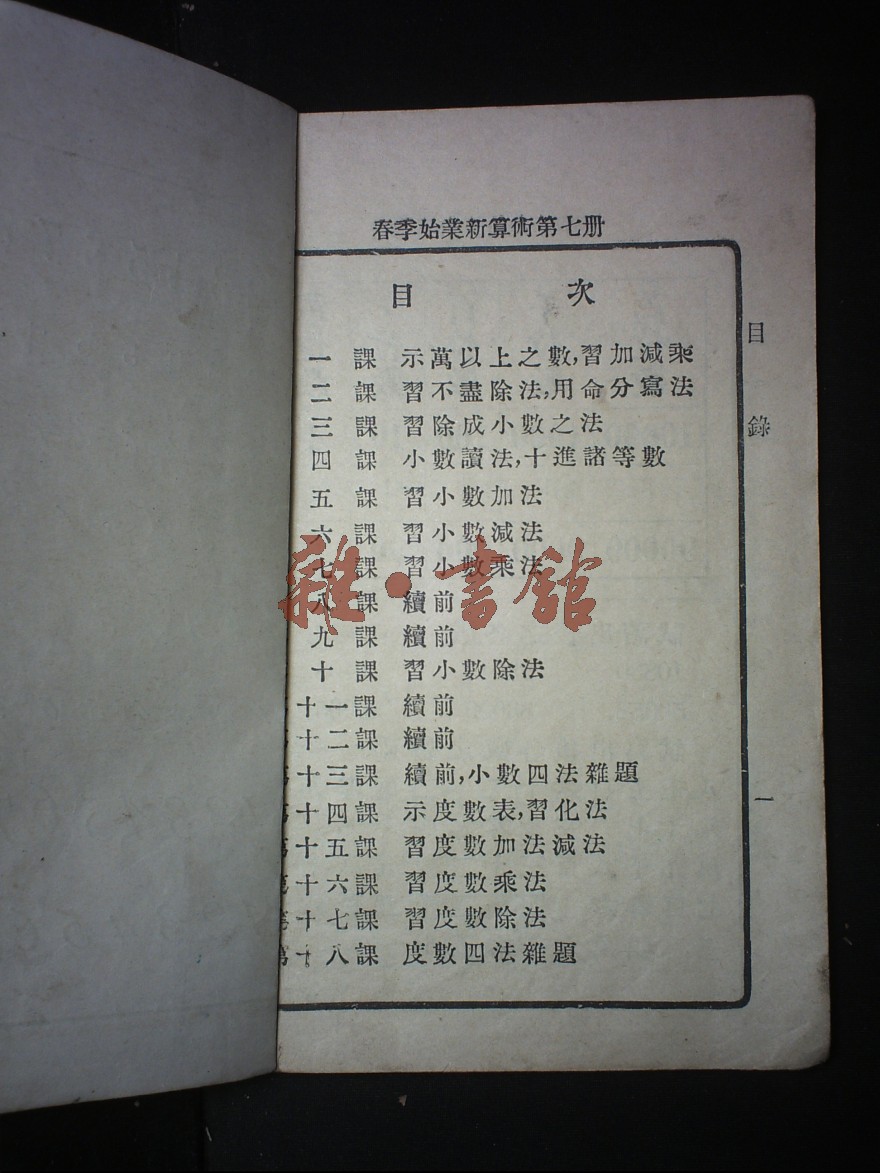 春季始業新算術第七册
目 次
一 課 示萬以上之數,習加減乘
二 課 習不盡除法,用命分寫法
三 課 習除成小數之法
四 課 小數讀法,十進諸等數
五 課 習小數加法
六 課 習小數減法
七 課 習小數乘法
八 課 續前
九 課 續前
十 課 習小數除法
十一課 續前
十二課 續前
十三課 續前,小數四法雜題
第十四課 示度數表,習化法
第十五課 習度數加法減法
第十六課 習度數乘法
第十七課 習度數除法
第十八課 度數四法雜題
目錄
一
雜·書館